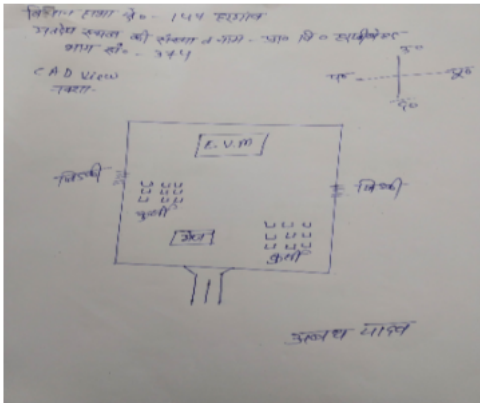 विधान सभा क्षे०- 144 हरगांव
मतदेय स्थल की संख्या व नाम - प्रा० वि०
भाग सं०- 344
CAD View
नक्शा-
उ०
प०
पू०
द०
E.V.M
खिड़की
खिड़की
कुर्सी
मेज
कुर्सी
यादव